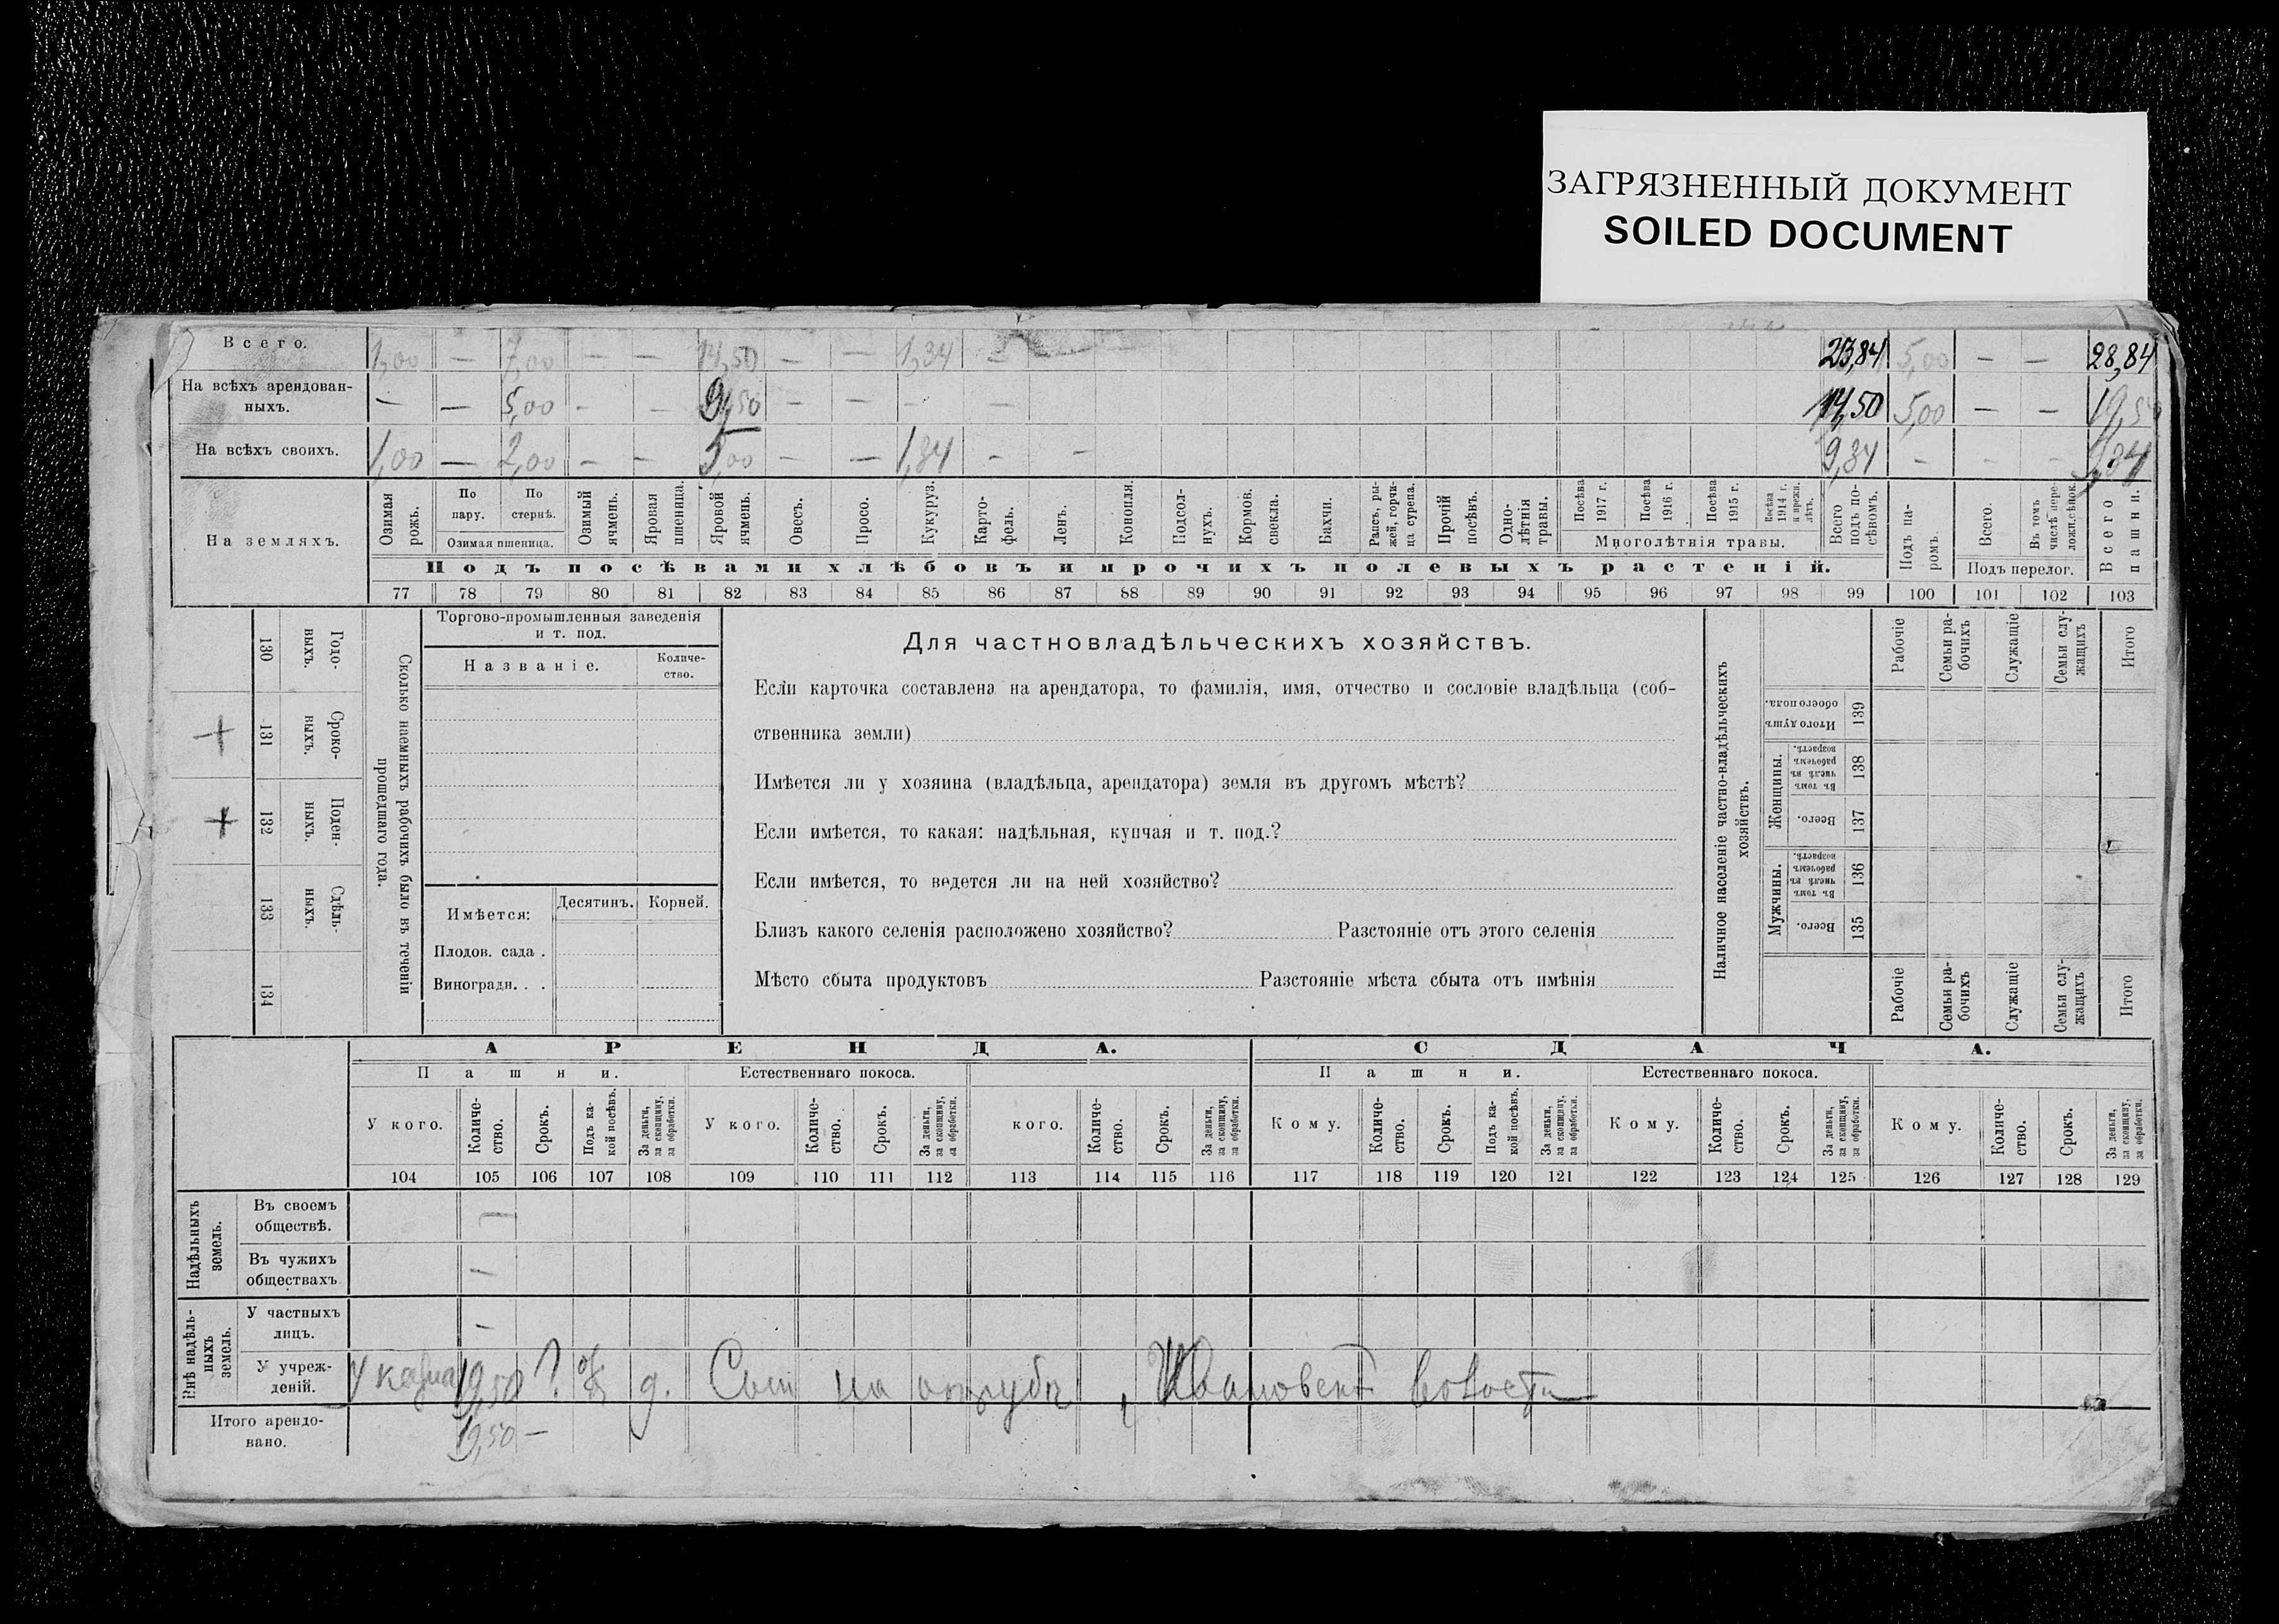 ЗАГРЯЗНЕННЫЙ ДОКУМЕНТ
SOILED DOCUMENT
Всего. 1,00 — 7,00 — — 14,50 — — 1,34 — — 23,84 5,00 — — 28,84
На всѣхъ арендованныхъ. — — 5,00 — — 9,50 — — — — 14,50 5,00 — — 19,50
На всѣхъ своихъ. 1,00 — 2,00 — — 5,00 — — 1,34 — — 9,34 — — — 9,34
На земляхъ.
Озимая рожь.
По пару.
По стернѣ.
Озимая пшеница.
Озимый ячмень.
Яровая пшеница.
Яровой ячмень.
Овесъ.
Просо.
Кукуруз.
Карто-фель.
Ленъ.
Конопля.
Подсол-нухъ.
Кормов. свекла.
Бахчи.
Рапсъ, ры-жей, горчи-ца сурепа.
Прочій посѣвъ.
Одно-лѣтнія травы.
Посѣва 1917 г.
Посѣва 1916 г.
Посѣва 1915 г.
Посѣва 1914 г. и прежн. лѣтъ.
Многолѣтнія травы.
Всего подъ по-сѣвомъ.
Подъ па-ромъ.
Всего.
Въ томъ числѣ пере-ложн. сѣнок.
Подъ перелог.
Всего пашни.
Подъ посѣвами хлѣбовъ и прочихъ полевыхъ растеній.
77 78 79 80 81 82 83 84 85 86 87 88 89 90 91 92 93 94 95 96 97 98 99 100 101 102 103
Годо-выхъ. 130
Сроко-выхъ. 131 +
Поден-ныхъ. 132 +
Сдѣль-ныхъ. 133
134
Сколько наемныхъ рабочихъ было въ теченіи прошедшаго года.
Торгово-промышленныя заведенія
и т. под.
Названіе.
Количе-ство.
Имѣется:
Десятинъ.
Корней.
Плодов. сада .
Виноградн. . .
Для частновладѣльческихъ хозяйствъ.
Если карточка составлена на арендатора, то фамилія, имя, отчество и сословіе владѣльца (соб-
ственника земли)
Имѣется ли у хозяина (владѣльца, арендатора) земля въ другомъ мѣстѣ?
Если имѣется, то какая: надѣльная, купчая и т. под.?
Если имѣется, то ведется ли на ней хозяйство?
Близъ какого селенія расположено хозяйство? Разстояніе отъ этого селенія
Мѣсто сбыта продуктовъ Разстояніе мѣста сбыта отъ имѣнія
Наличное населеніе частно-владѣльческихъ хозяйствъ.
Рабочіе
Семьи ра-бочихъ
Служащіе
Семьи слу-жащихъ
Итого
Итого душъ обоего пола. 139
Женщины.
Въ томъ числѣ въ рабочемъ возрастѣ. 138
Всего. 137
Мужчины.
Въ томъ числѣ въ рабочемъ возрастѣ. 136
Всего. 135
Рабочіе
Семьи ра-бочихъ
Служащіе
Семьи слу-жащихъ
Итого
АРЕНДА. СДАЧА.
Пашни. Естественнаго покоса. Пашни. Естественнаго покоса.
У кого.
Количе-ство.
Срокъ.
Подъ ка-кой посѣвъ.
За деньги, за скопщину, за обработки.
У кого.
Количе-ство.
Срокъ.
За деньги, за скопщину, за обработки.
кого.
Количе-ство.
Срокъ.
За деньги, за скопщину, за обработки.
Кому.
Количе-ство.
Срокъ.
Подъ ка-кой посѣвъ.
За деньги, за скопщину, за обработки.
Кому.
Количе-ство.
Срокъ.
За деньги, за скопщину, за обработки.
Кому.
Количе-ство.
Срокъ.
За деньги, за скопщину, за обработки.
104 105 106 107 108 109 110 111 112 113 114 115 116 117 118 119 120 121 122 123 124 125 126 127 128 129
Надѣльныхъ земель.
Въ своемъ обществѣ. —
Въ чужихъ обществахъ —
Внѣ надѣль-ныхъ земель.
У частныхъ лицъ. —
У учреж-деній. У казна 19,50 ? д. на отрубѣ, Ивановской волости
Итого арендо-вано. 19,50 —